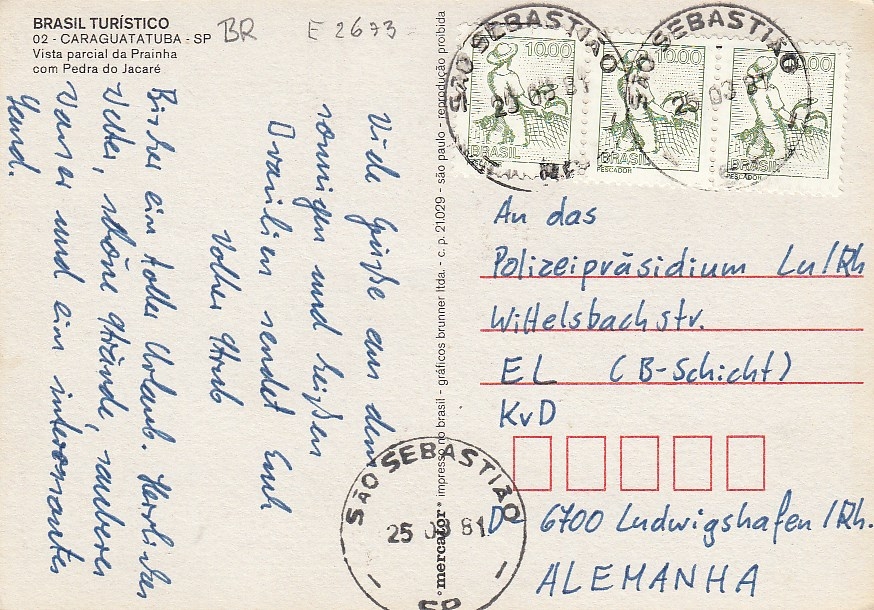 BRASIL TURÍSTICO
02 - CARAGUATATUBA - SP
Vista parcial da Prainha
com Pedra do Jacaré
BR E 2673
Viele Grüße aus dem
sonnigen und heißen
Brasilien sendet Euch
Volker
Bisher ein toller Urlaub. Herrliches
Wetter, schöne Strände, sauberes
Wasser und ein interessantes
Land.
mercator impresso no brasil - gráficos brunner ltda. - c. p. 21.029 - são paulo - reprodução proibida
SÃO SEBASTIÃO
25 03 81
10,00
BRASIL
SÃO SEBASTIÃO
25 03 81
10,00
BRASIL
PESCADOR
10,00
BRASIL
PESCADOR
An das
Polizeipräsidium Lu/Rh
Wittelsbachstr.
EL (B-Schicht)
KvD
D- 6700 Ludwigshafen/Rh.
ALEMANHA
SÃO SEBASTIÃO
25 03 81
SP